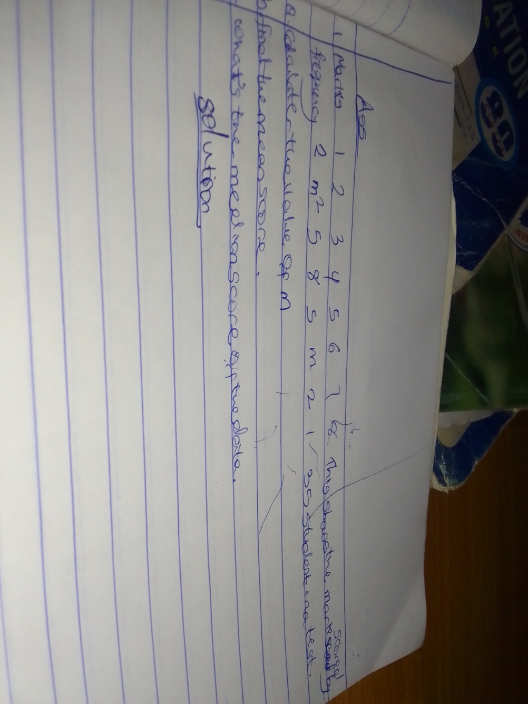 Ass
1, Marks 1 2 3 4 5 6 7 8. This shows the mark scored by
frequency 2 m² 5 8 5 m 2 1 / 35 students in a test.
a, calculate the value of m
b, find the mean score.
c, what's the median score of the data.
solution
ATION